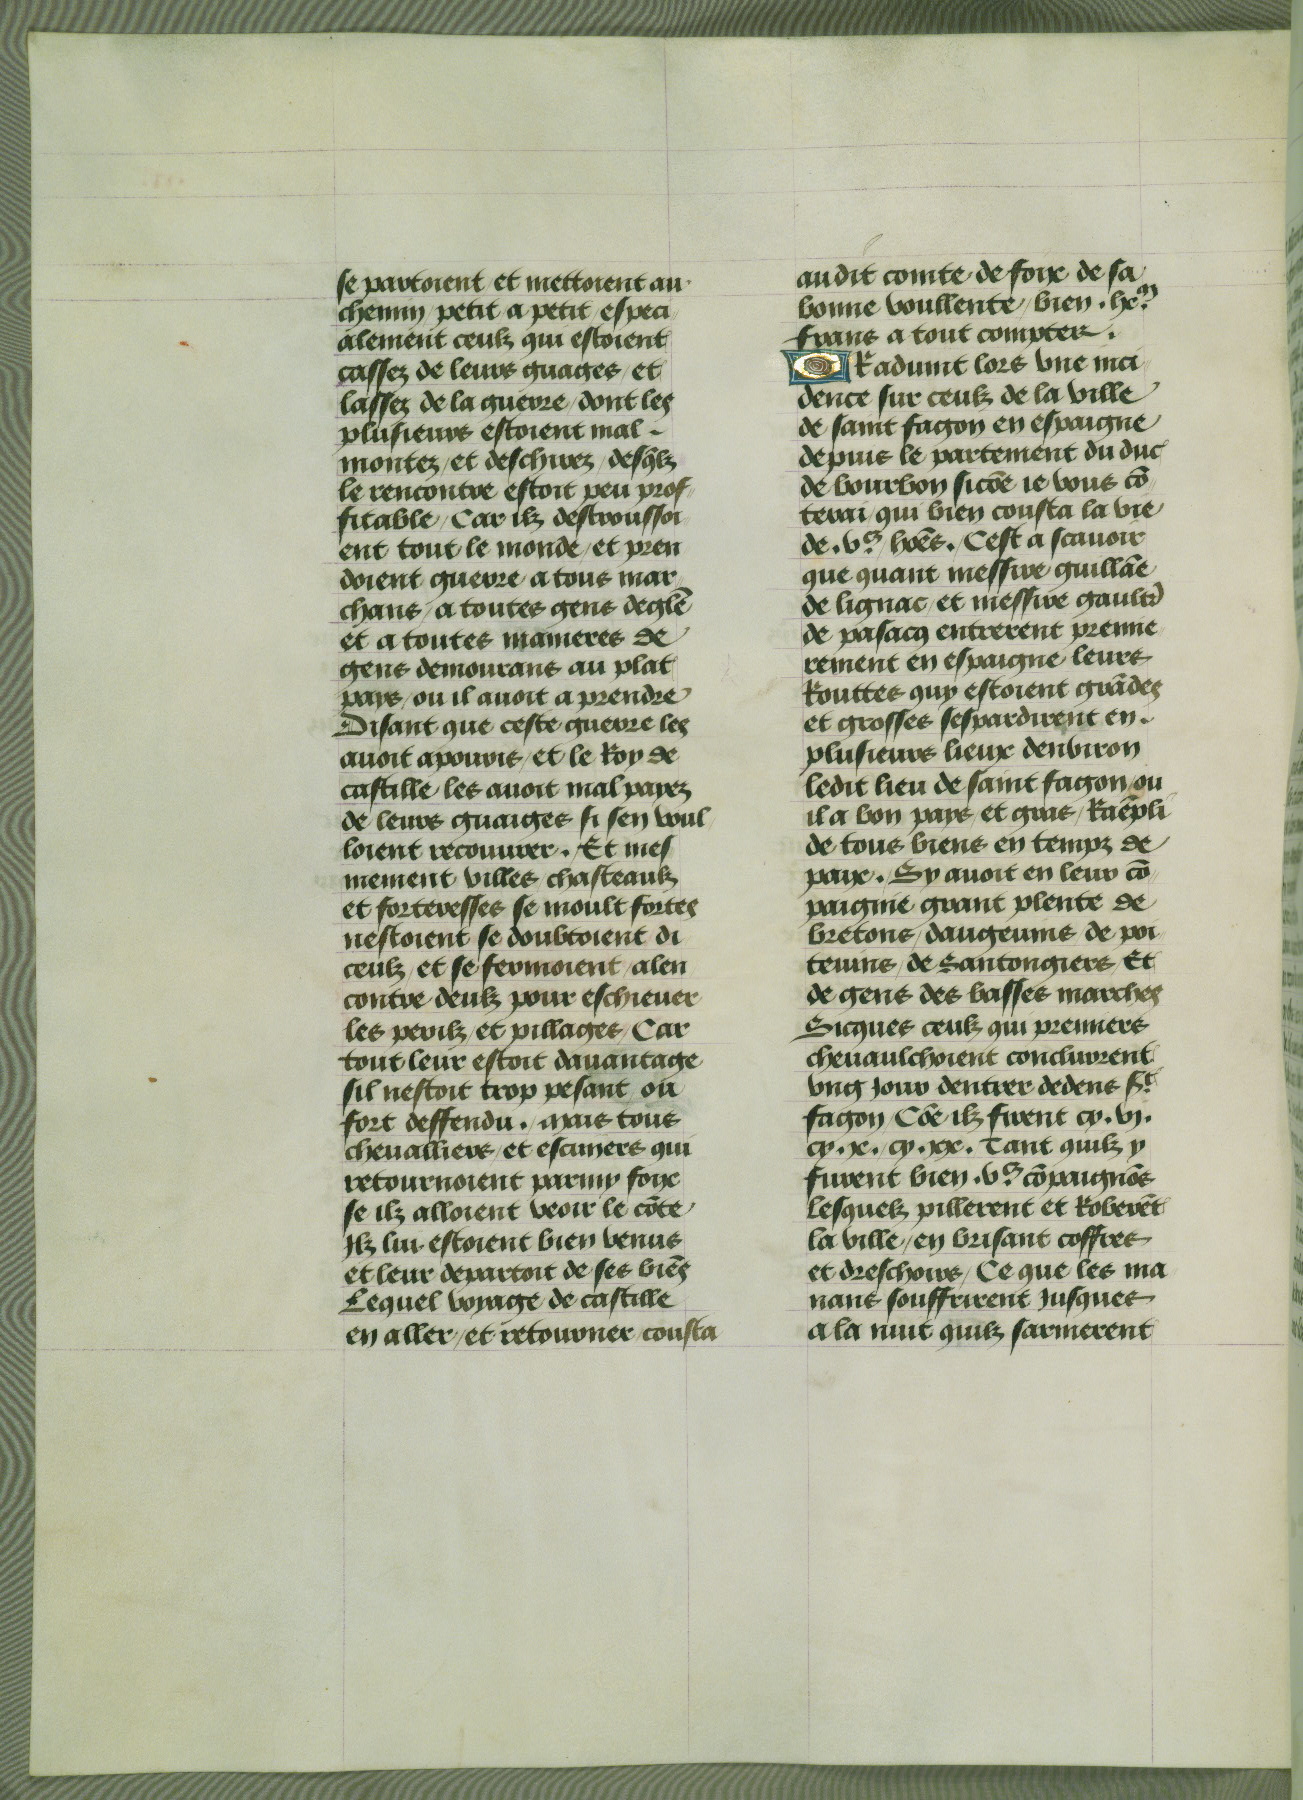 se partoient et mettoient au
chemin petit a petit especi
alement ceulz qui estoient
cassez de leurs guages / et
lassez de la guerre / dont les
plusieurs estoient mal
montez / et deschirez / desq̃lz
le rencontre estoit peu prof
fitable / Car ilz destroussoi
ent tout le monde / et pren
doient guerre a tous mar
chans / a toutes gens deglẽ
et a toutes manieres de
gens demourans au plat
pays / ou il auoit a prendre
Disant que ceste guerre les
auoit apouris / et le Roy de
castille les auoit mal payez
de leurs guaiges si sen voul
loient recouurer . Et mes
mement villes chasteaulz
et forteresses se moult fortes
nestoient se doubtoient di
ceulz / et se fermoient / alen
contre deulz pour eschieuer
les perilz / et pillages / Car
tout leur estoit dauantage
sil nestoit trop pesant / ou
fort deffendu . Mais tous
cheualliers / et escuiers qui
retournoient parmy foix
se ilz alloient veoir le cõte
Ilz lui estoient bien venus
et leur departoit de ses biẽs
Lequel voyage de castille
en aller / et retourner cousta
audit comte de foix de sa
bonne voullente / bien .
frans a tout compter .
Radiunt lors vne inci
dence sur ceulz de la ville
de saint fagon en espaigne
depuis le partement du duc
de bourbon sicõe ie vous cõ
terai / qui bien cousta la vie
de . vᶜ . hõẽs . Cest a scauoir
que quant messire guillãe
de lignac / et messire gaultr̃
de pasacq entrerent premie
rement en espaigne leurs
Routtes quy estoient grãdes
et grosses sespardirent en
plusieurs lieux denuiron
ledit lieu de saint fagon / ou
il a bon pays et gras / Raẽpli
de tous biens en tempz de
paix . Sy auoit en leur cõ
paignie grant plente de
bretons / daugeuins de poi
teuins / de Santongiers / Et
de gens des basses marches
Sicques ceulz qui premiers
cheuaulchoient conclurrent
vng Jour dentrer dedens Sᵗ
fagon / Cõe ilz firent cy . vj .
cy . x . cy . xx . Tant quilz y
furent bien . vᶜ . cõpaignõs
Lesquelz pillerent et Roberẽt
la ville / en brisant coffres
et dreschoirs / Ce que les ma
nans souffrirent Jusques
a la nuit quilz sarmerent